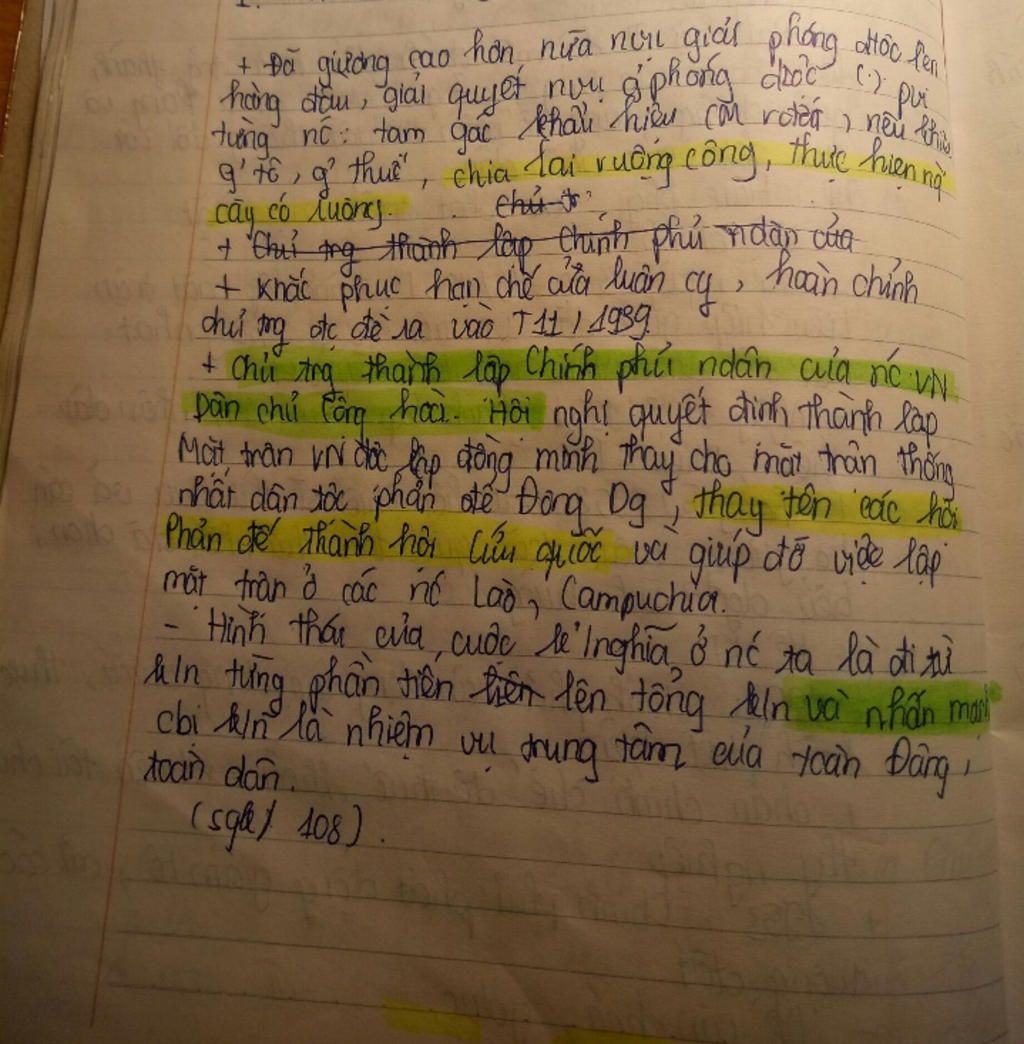 + Đã giương cao hơn nữa nvụ giải phóng dtộc lên
hàng đầu, giải quyết nvụ g'phóng dtộc (:) pvi
từng nc: tạm gác khẩu hiệu CM rđất, nêu khẩu
g' tô, g' thuế, chia lại ruộng công, thực hiện ng`
cày có ruộng. Chủ tr
+ Chủ trg thành lập Chính phủ ndân của
+ Khắc phục hạn chế của luận cg, hoàn chỉnh
chủ trg đc đề ra vào T11/1939
+ Chủ trg thành lập Chính phủ ndân của nc VN
Dân chủ Cộng hoà. Hội nghị quyết định thành lập
Mặt trận VN độc lập đồng minh thay cho mặt trận thống
nhất dân tộc phản đế Đông Dg, thay tên các hội
Phản đế thành hội Cứu quốc và giúp đỡ việc lập
mặt trận ở các nc Lào, Campuchia.
- Hình thái của cuộc k'nghĩa ở nc ta là đi từ
k/n từng phần tiến tiến lên tổng k/n và nhấn mạnh
cbị k/n là nhiệm vụ trung tâm của toàn Đảng,
toàn dân.
(sgk/ 108).